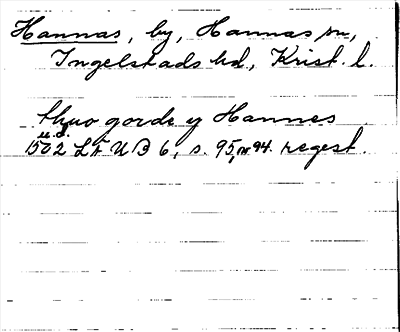 Hannas, by, Hannas sn,
Ingelstads hd, Krist. l.
thuo gorde y Hannes
u.d.
1502 LÄUB 6, s. 95, nr 94. regest.